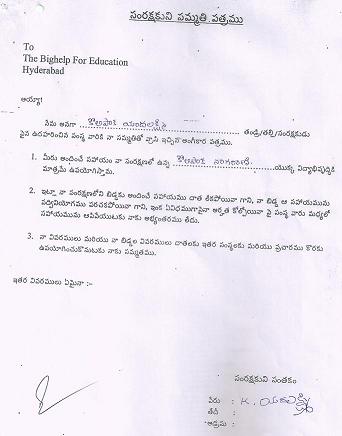 సంరక్షకుని సమ్మతి పత్రము
To
The Bighelp For Education
Hyderabad
అయ్యా!
నేను అనగా తండ్రి/తల్లి/సంరక్షకుడు
పైన ఉదహరించిన సంస్థ వారికి నా సమ్మతితో వ్రాసి ఇచ్చిన అంగీకార పత్రము.
1. మీరు అందించే సహాయం నా సంరక్షణలో ఉన్న యొక్క విద్యాభివృద్ధికి
మాత్రమే ఉపయోగిస్తాను.
2. ఇట్లా నా సంరక్షణలోని బిడ్డకు అందించే సహాయము దాత లేకపోయినా గాని, నా బిడ్డ ఆ సహాయమును
సద్వినియోగము పరచకపోయినా గాని, ఇంక ఏవిధముగానైనా అర్హత కోల్పోయినా పై సంస్థ వారు మధ్యలో
సహాయమును ఆపివేయుటకు నాకు అభ్యంతరము లేదు.
3. నా వివరములు మరియు నా బిడ్డల వివరములు దాతలకు ఇతర సంస్థలకు మరియు ప్రచారము కొరకు
ఉపయోగించుకొనుటకు నాకు సమ్మతము.
ఇతర వివరములు ఏమైనా :-
సంరక్షకుని సంతకం
పేరు : K.
తేదీ :
అడ్రసు :